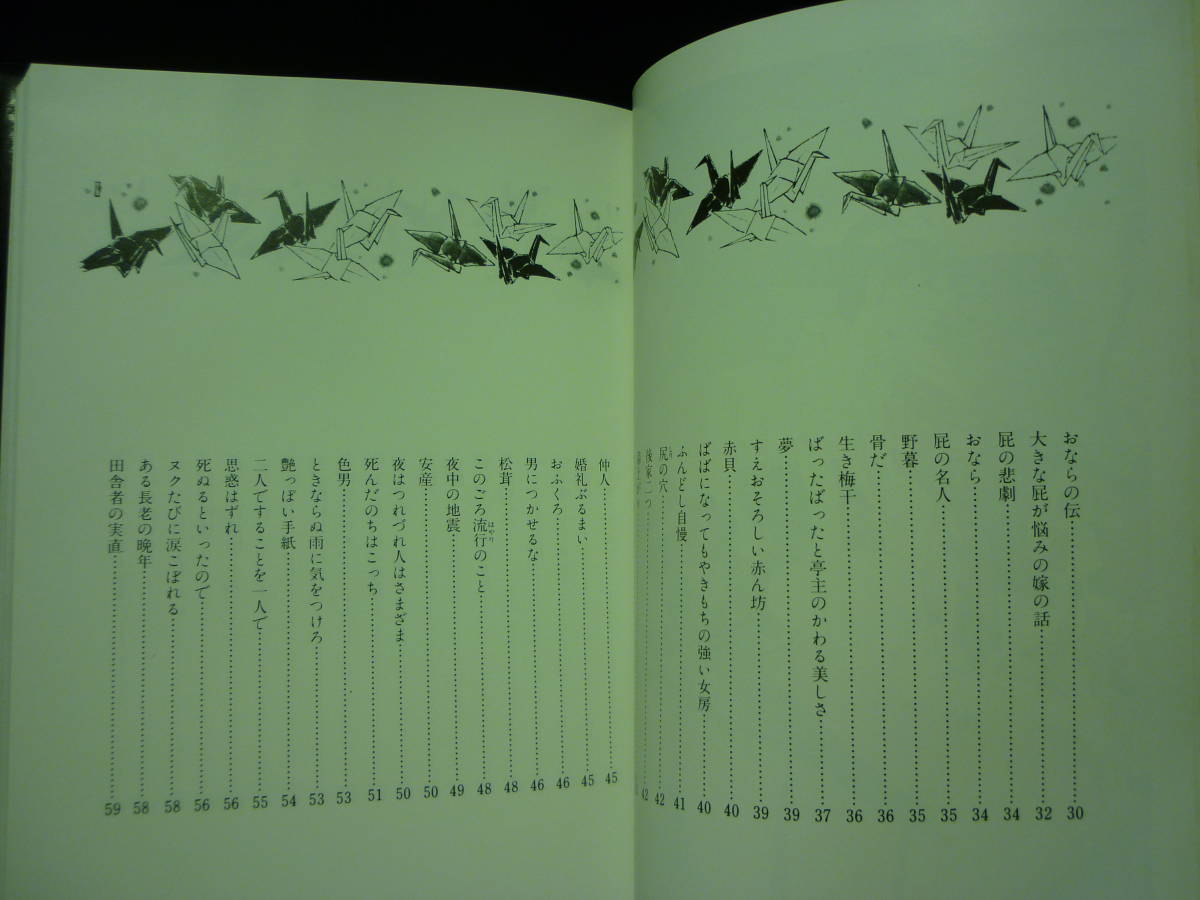 おならの伝……………30
大きな屁が悩みの嫁の話……………32
屁の悲劇……………34
おなら……………34
屁の名人……………35
野暮……………35
骨だ……………36
生き梅干……………36
ばったばったと亭主のかわる美しさ……………37
夢……………39
すえおそろしい赤ん坊……………39
赤貝……………40
ばばになってもやきもちの強い女房……………40
ふんどし自慢……………41
尻の穴……………42
後家二つ……………42
仲人……………45
婚礼ぶるまい……………45
おふくろ……………46
男につかせるな……………46
松茸……………48
このごろ流行のこと……………48
はやり
夜中の地震……………49
安産……………50
夜はつれづれ人はさまざま……………50
死んだのちはこっち……………51
色男……………53
ときならぬ雨に気をつけろ……………53
艶っぽい手紙……………54
二人ですることを一人で……………55
思惑はずれ……………56
死ぬるといったので……………56
ヌクたびに涙こぼれる……………58
ある長老の晩年……………58
田舎者の実直……………59